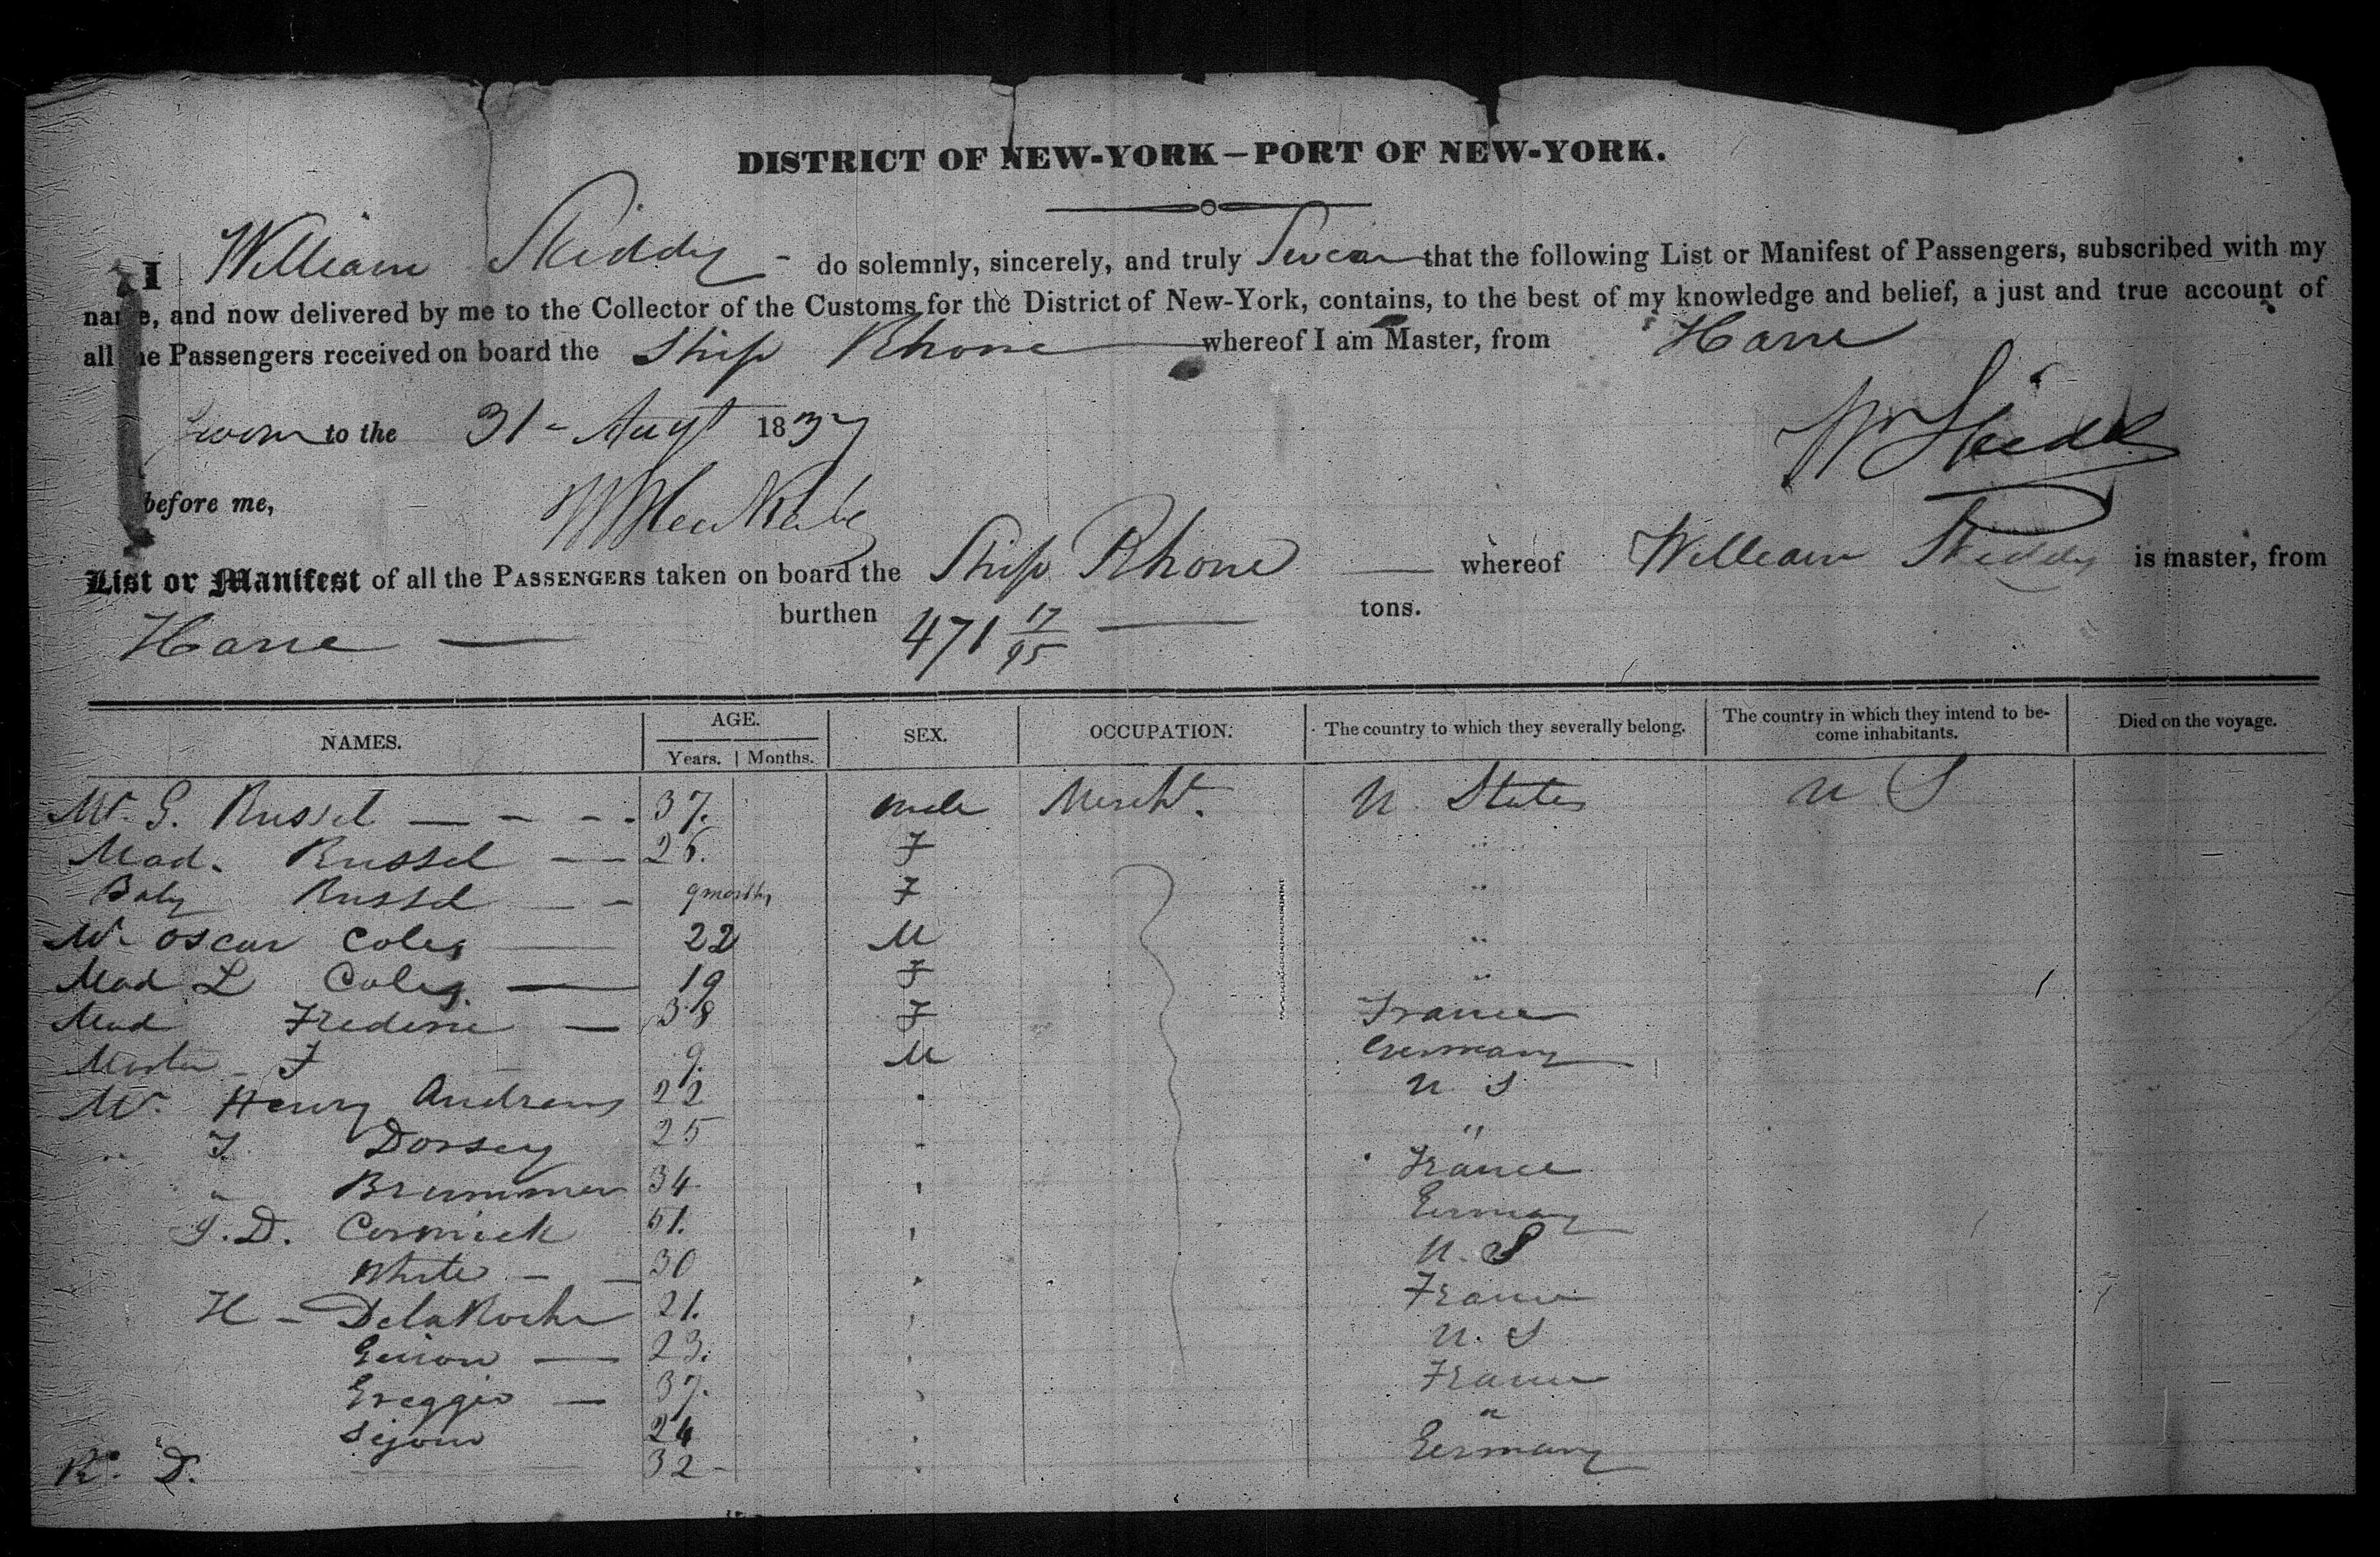 DISTRICT OF NEW-YORK—PORT OF NEW-YORK.
I William Skiddy - do solemnly, sincerely, and truly Swear that the following List or Manifest of Passengers, subscribed with my
name, and now delivered by me to the Collector of the Customs for the District of New-York, contains, to the best of my knowledge and belief, a just and true account of
all the Passengers received on board the Ship Rhone whereof I am Master, from Havre
Sworn to the 31 - Augt 1837
Wm Skiddy
before me,
List or Manifest of all the PASSENGERS taken on board the Ship Rhone — whereof William Skiddy is master, from
Havre — burthen 471 17/95 — tons.
NAMES. AGE. SEX. OCCUPATION. The country to which they severally belong. The country in which they intend to be- Died on the voyage.
Years. Months. come inhabitants.
Mr. G. Russel — - - - 37. male Mercht. U. States U S
Mad. Russel — — 26. F "
Baby Russel — - 9 months F "
Mr Oscar Coles — 22 M "
Mad L Coles. — 19 F "
Mad Frederic — 38 F France
Master F 9. M Germany
Mr. Henry Andrews 22 . U S
" J. Dorsey 25 - "
" Brummer 34 . France
J. D. Cormick 51. . Germany
White - — 30 . U. S
H - DelaRoche 21. . France
— 23. . U. S
Greggio — 37. . France
Sejour 24 . "
R. D. 32 - . Germany